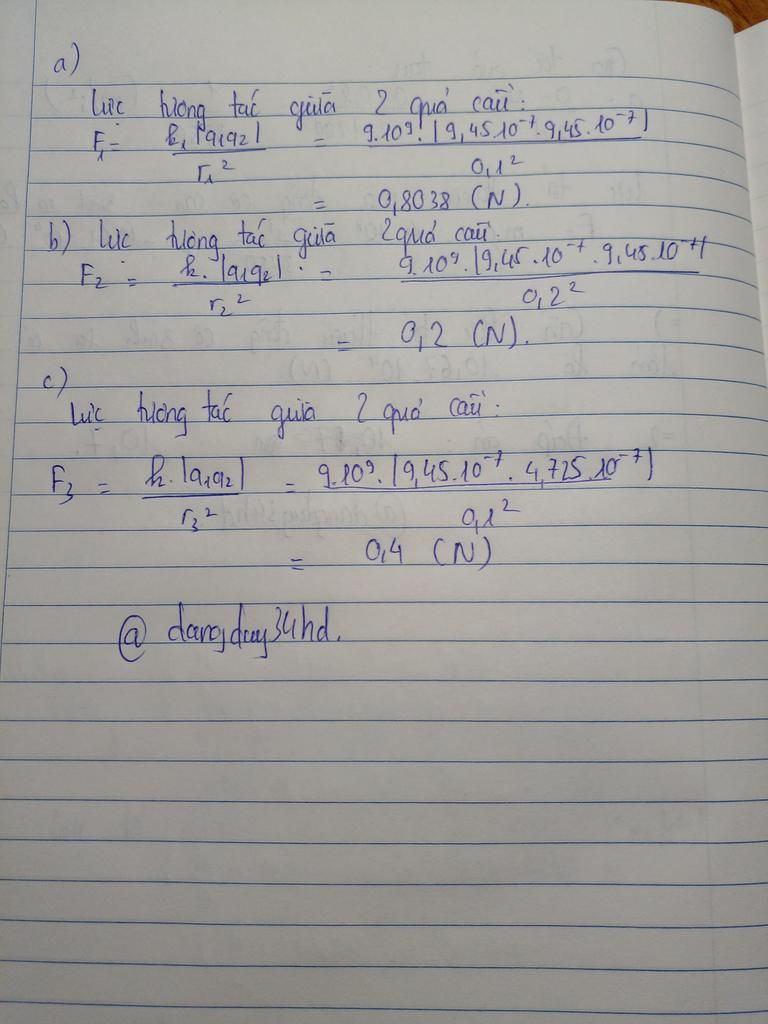 a)
Lực tương tác giữa 2 quả cầu:
F₁ = k.|q₁q₂| / r₁² = 9.10⁹.|9,45.10⁻⁷.9,45.10⁻⁷| / 0,1²
= 0,8038 (N).
b) Lực tương tác giữa 2 quả cầu:
F₂ = k.|q₁q₂| / r₂² = 9.10⁹.|9,45.10⁻⁷.9,45.10⁻⁷| / 0,2²
= 0,2 (N).
c)
Lực tương tác giữa 2 quả cầu:
F₃ = k.|q₁q₂| / r₃² = 9.10⁹.|9,45.10⁻⁷.4,725.10⁻⁷| / 0,1²
= 0,4 (N)
@ dangduy34hd.